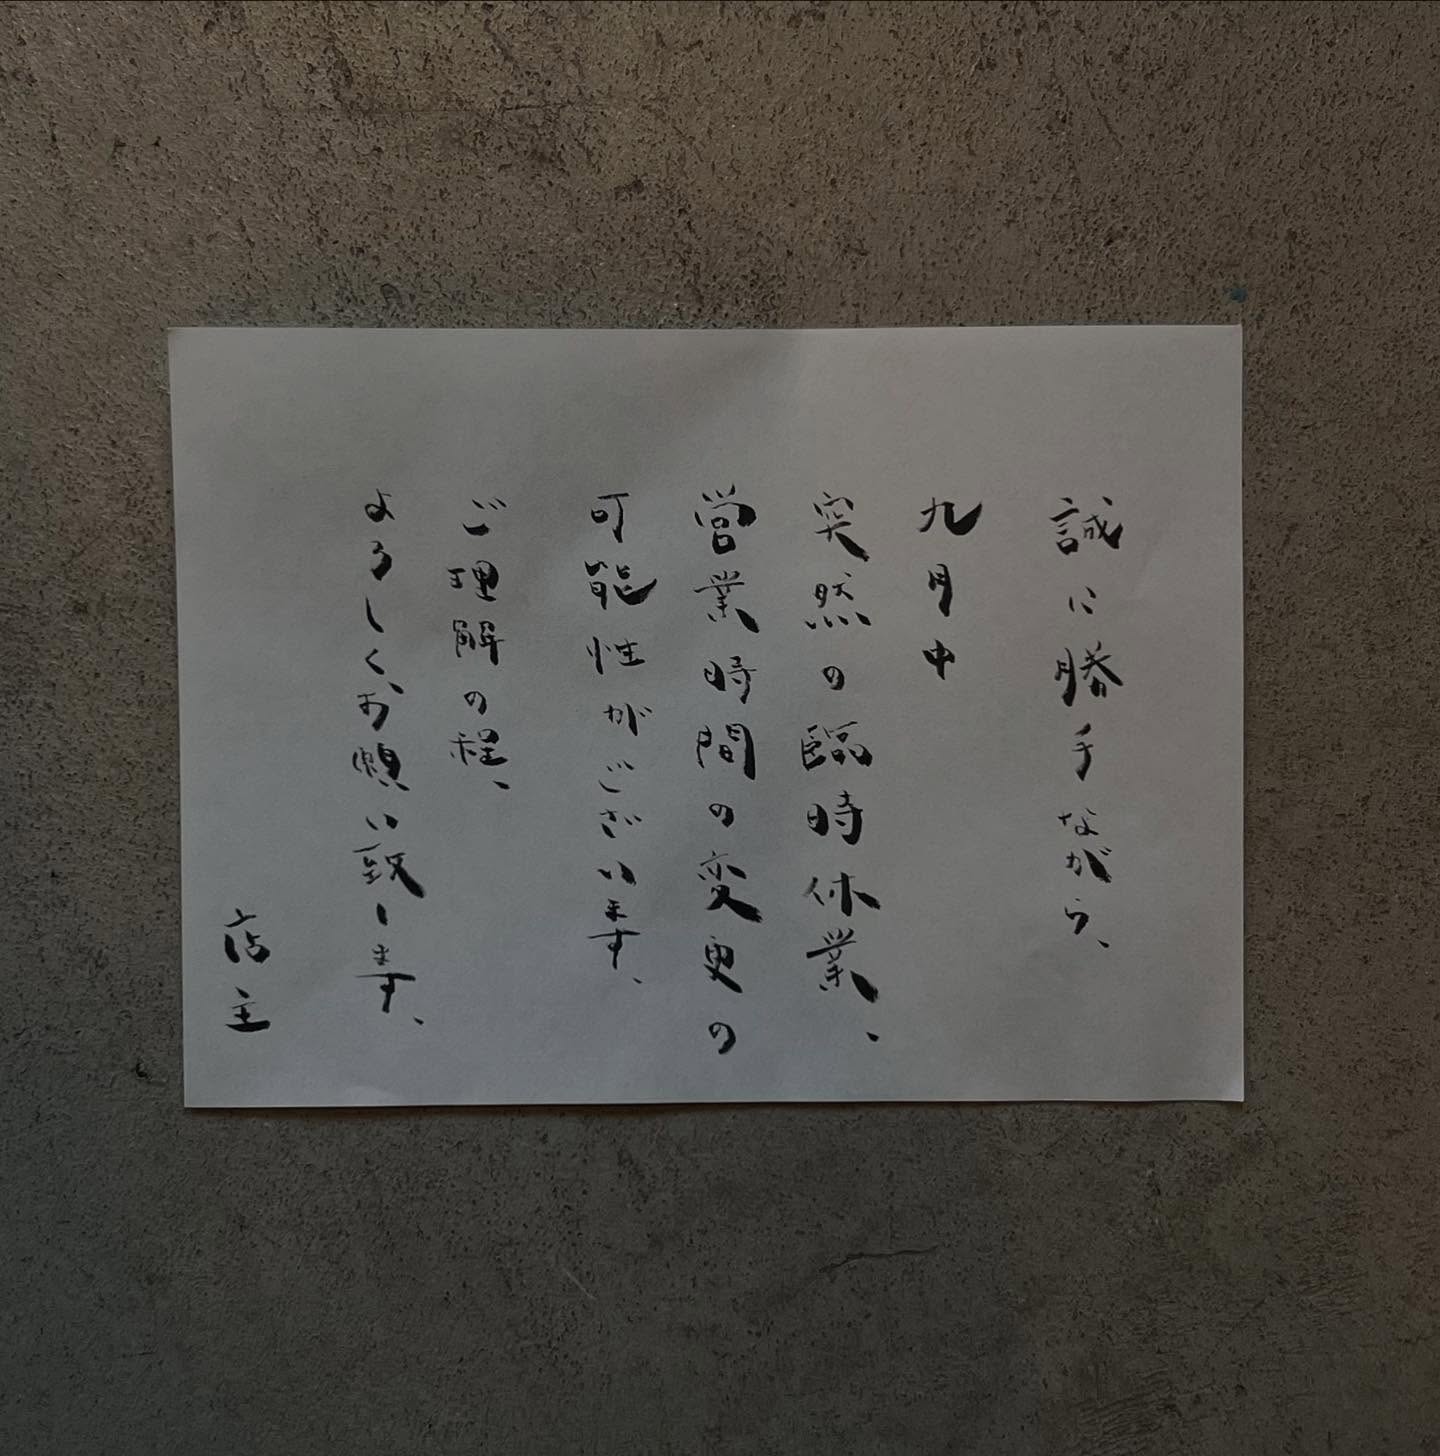 誠に勝手ながら、
九月中
突然の臨時休業、
営業時間の変更の
可能性がございます、
ご理解の程、
よろしく、お願い致します、
店主